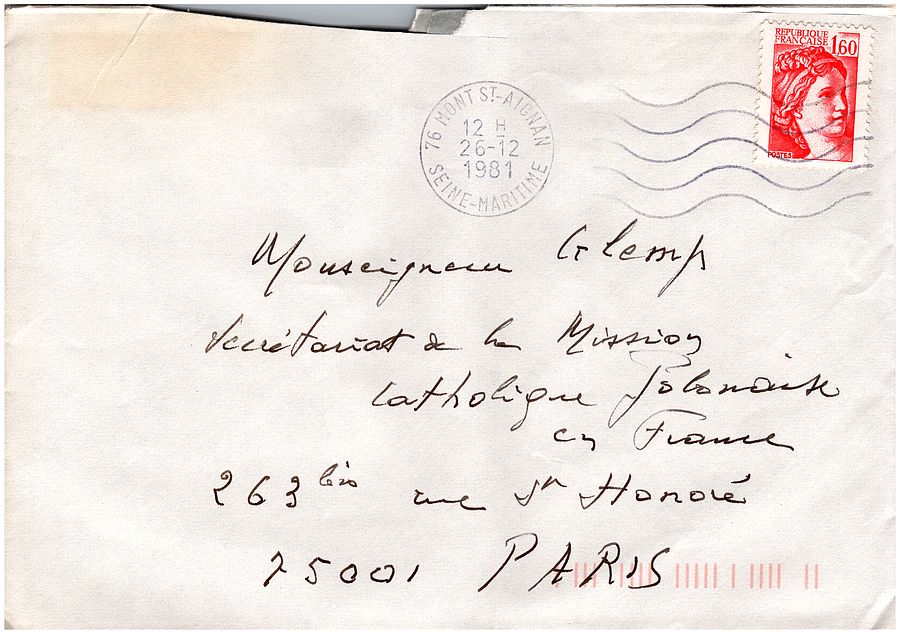 REPUBLIQUE
FRANÇAISE
1,60
POSTES
76 MONT ST-AIGNAN
12 H
26-12
1981
SEINE-MARITIME
Monseigneur Glemp
Secrétariat de la Mission
Catholique Polonaise
en France
263 bis rue St Honoré
75001 PARIS